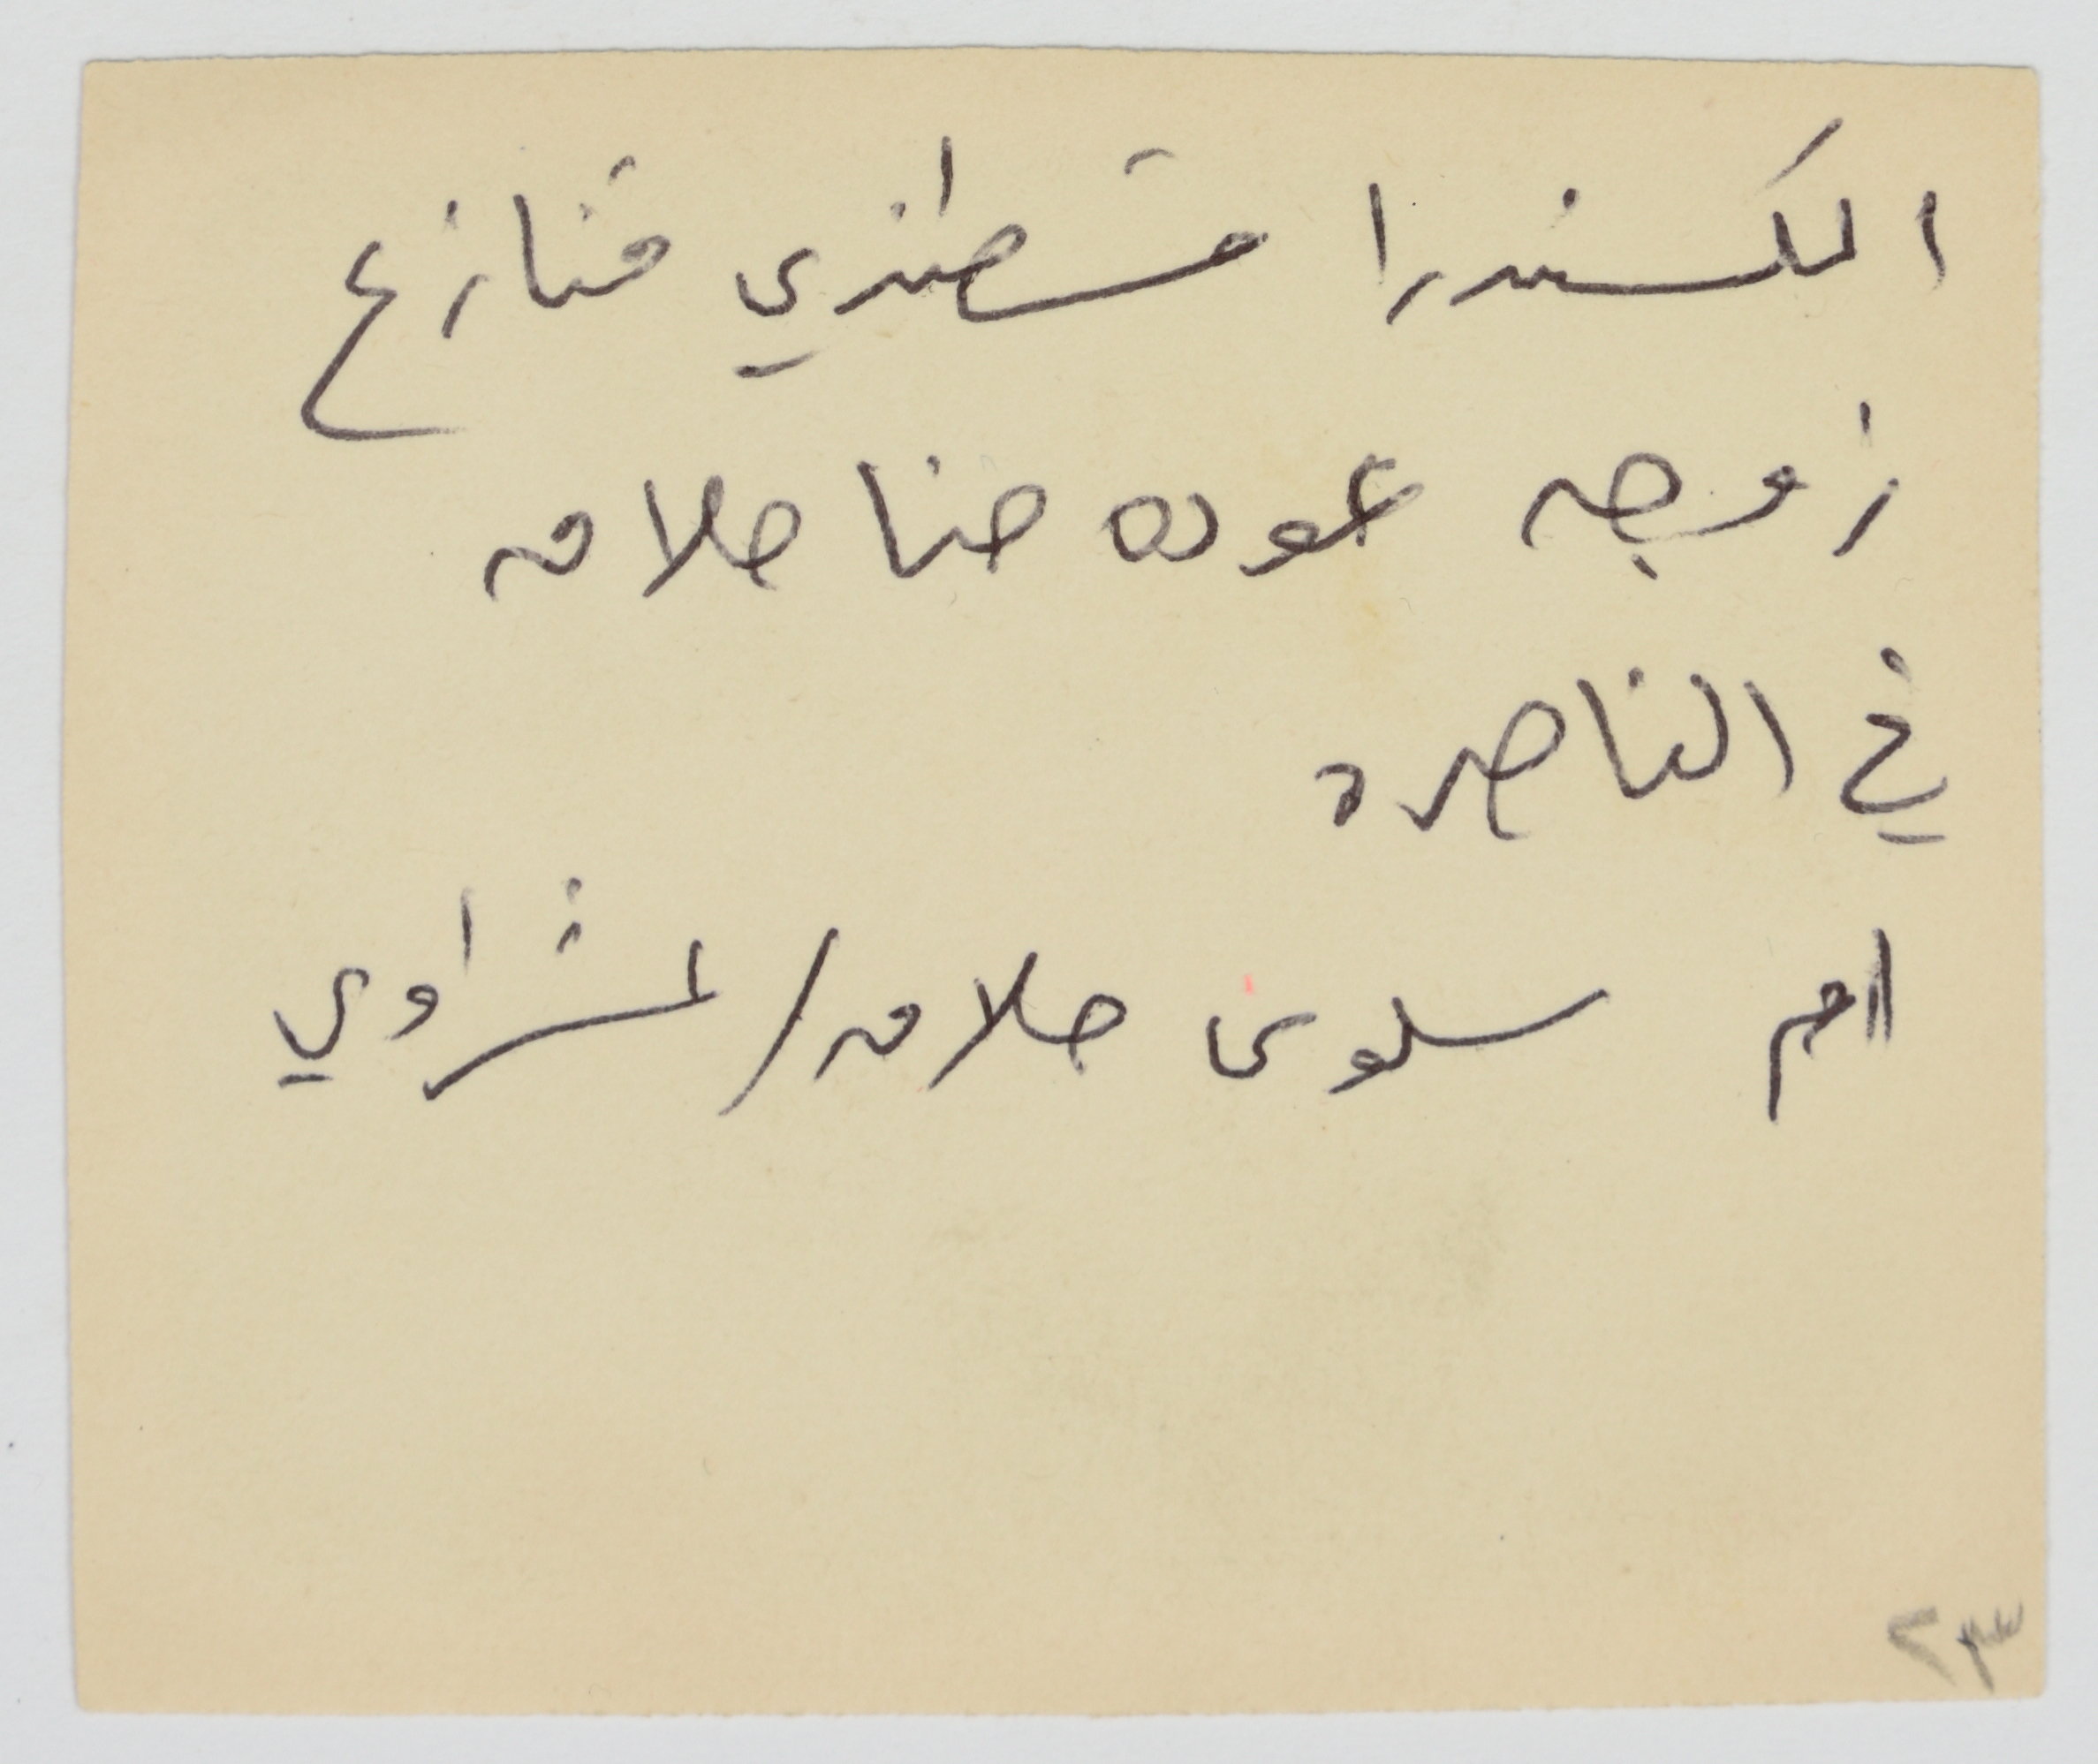 الكسندرا قسطندي قنازع
زوجه عوده حنا حلامه
في الناصره
ام سلوى حلامه/شزاوي
٢٣